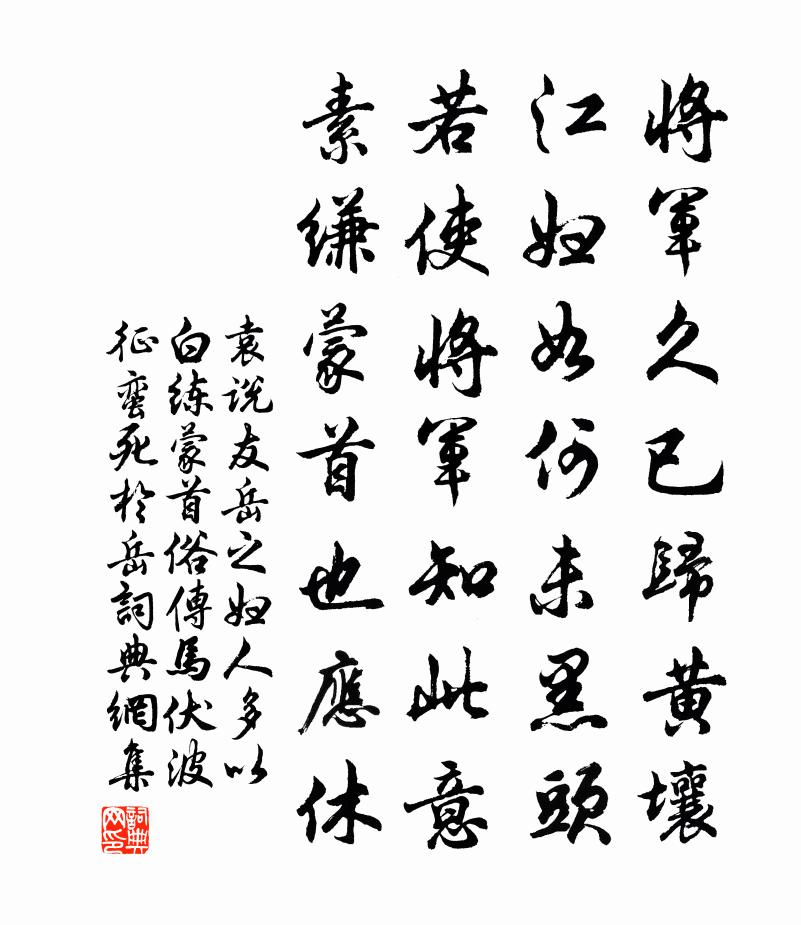 將軍久已歸黃壤
江婦如何未黑頭
若使將軍知此意
素縑蒙首也應休
袁説友岳之婦人多以
白练蒙首俗傳馬伏波
征蛮死於岳詞典網集
詞典网印